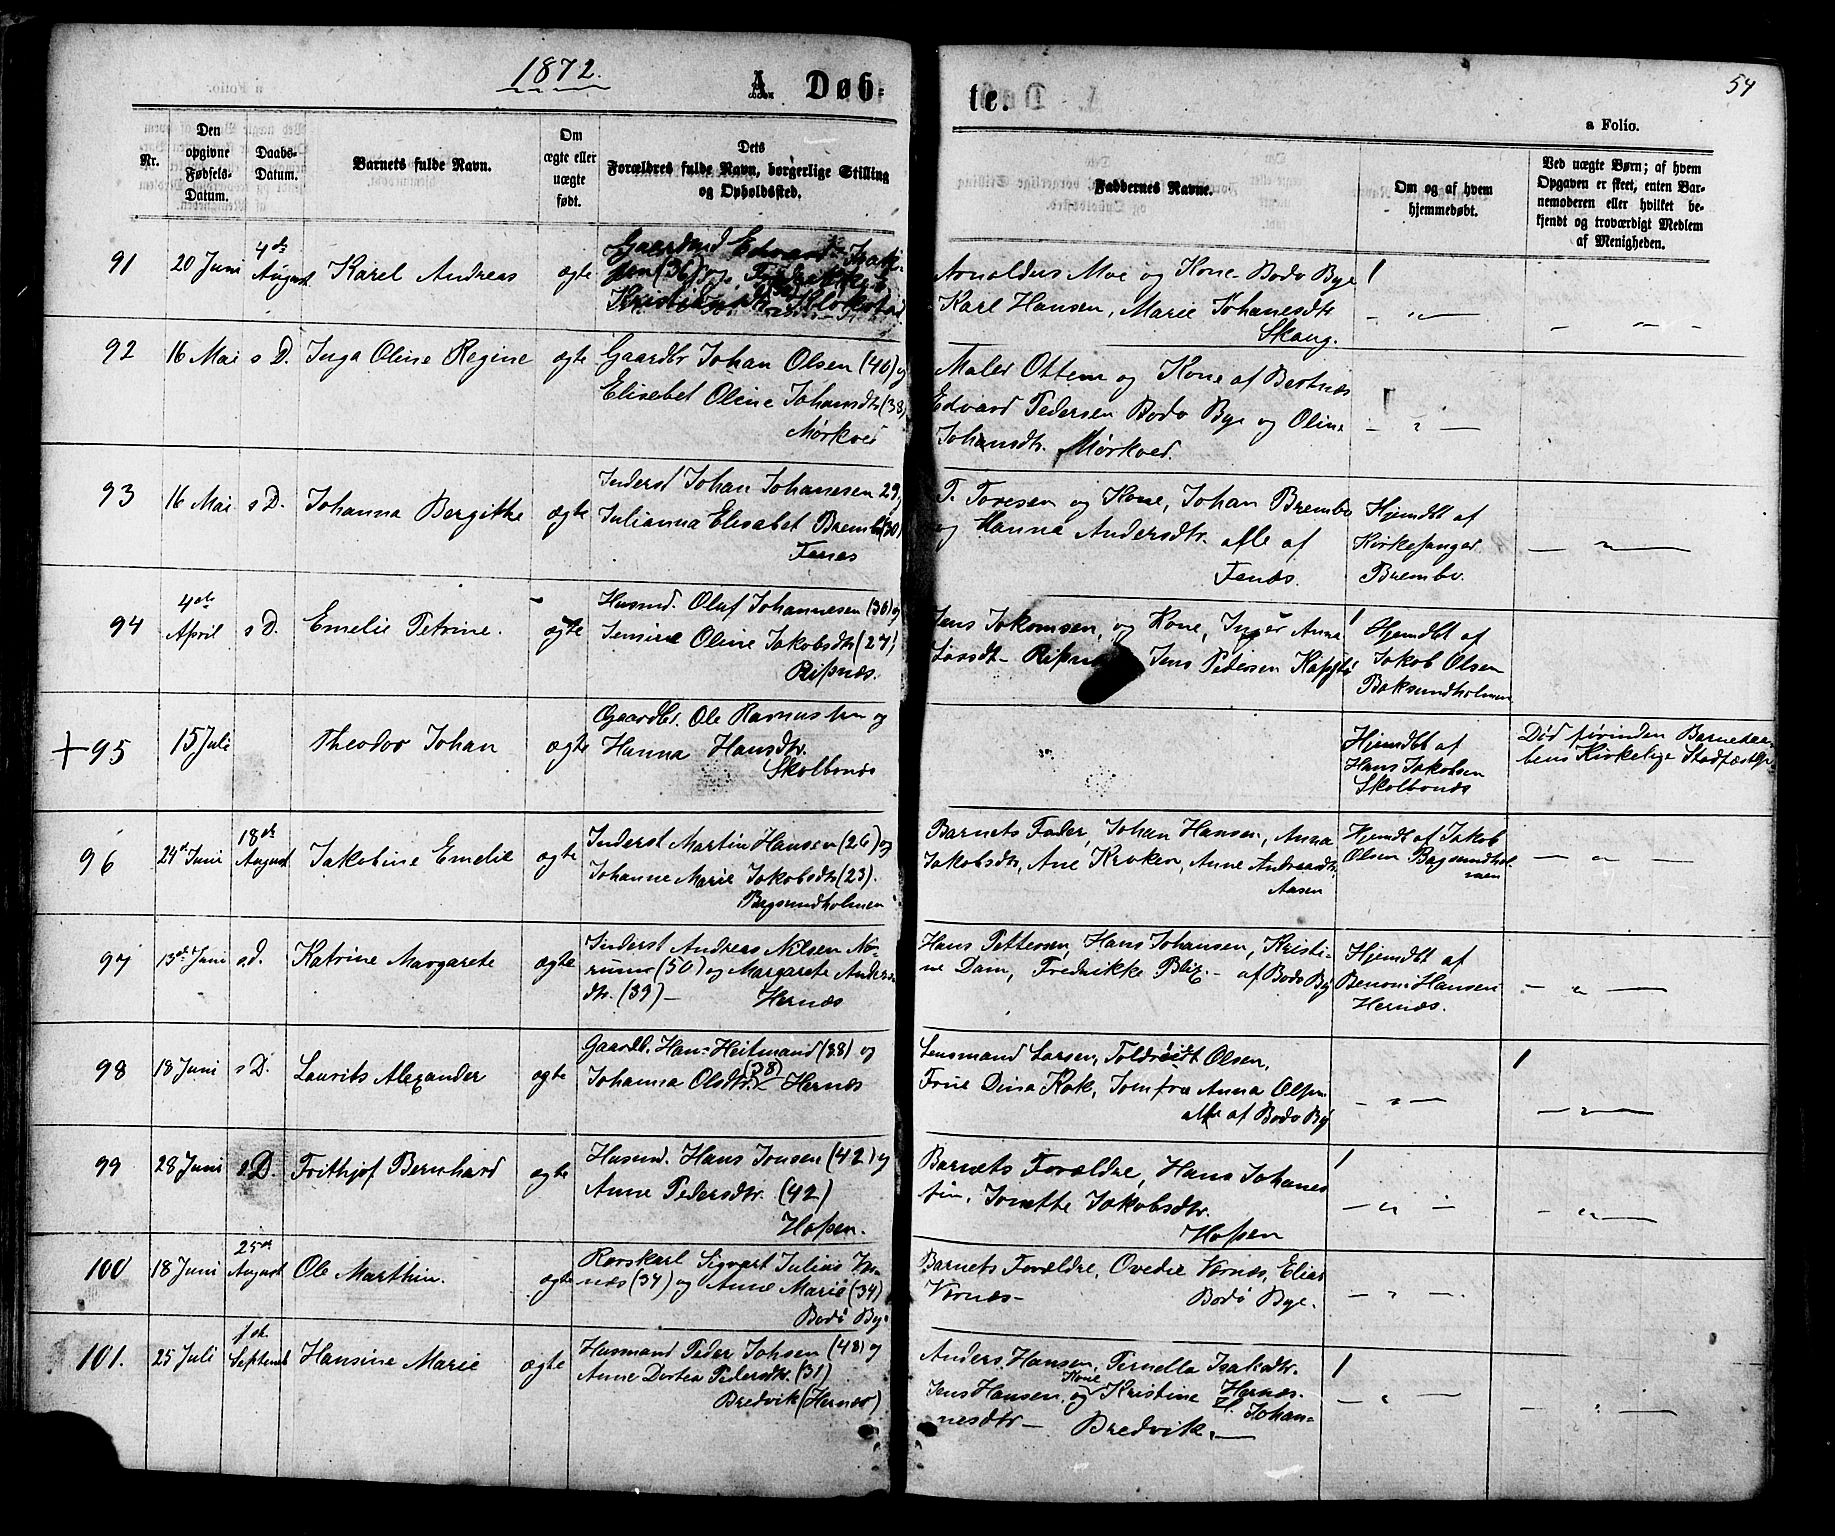 1872.
A. Døb-
te.
54
a Folio.
Nr.
Den opgivne Fødsels-Datum.
Daabs-Datum.
Barnets fulde Navn.
Om ægte eller uægte født.
Dets Forældres fulde Navn, borgerlige Stilling og Opholdssted.
Faddernes Navne.
Om og af hvem hjemmedøbt.
Ved uægte Børn; af hvem Opgaven er skeet, enten Barnemoderen eller hvilket bekjendt og troværdigt Medlem af Menigheden.
91 20 Juni 4de August Karel Andreas ægte
Gaardmd Edvard Isak-
sen (36) og Fredrikke
Kristiansdtr. Klokstad
Arnoldus Moe og Kone - Bodo Bye
Karl Hansen, Marie Johanesdtr
Skaug.
92 16 Mai s D. Inga Oline Regine ægte
Gaardbr Johan Olsen (40) og
Elisebet Oline Johansdtr (38)
Mørkved
Maler Ottem og Kone af Bertnæs
Edvard Pedersen Bodo Bye og Oline
Johansdtr. Mørkved.
93 16 Mai s D. Johanna Bergitke ægte
Inderst Johan Johanesen 29,
Julianna Elisabet Brembo (30)
Fenæs
T. Toresen og Kone, Johan Brembo
og Hanna Andersdtr. alle af
Fenæs.
Hjemdbt af
Kirkesanger
Brembo.
94 4de April s D. Emelie Petrine. ægte
Husmd. Oluf Johannesen (30) og
Jensine Oline Jakobsdtr (27)
Ripnæs.
Jens Jakomsen, og Kone, Inger Anna
Jens Pedersen
Hjemdbt af
Jakob Olsen
Baksundholmen
+ 95 15 Juli Theodor Johan ægte
Gaardbr. Ole Rasmussen og
Hanna Hansdtr.
Skolbonæs
Hjemdbt af
Hans Jakobsen
Skolbonæs
Død førinden Barnedaa-
bens Kirkelige Stadfæstelse
96 24de Juni 18de August Jakobine Emelie ægte
Inderst Martin Hansen (26) og
Johanne Marie Jakobsdtr (23).
Bagsundholmen
Barnets Fader, Johan Hansen, Anna
Jakobsdtr, Ane Kroken, Anne Andreasdtr.
Aasen
Hjemdt af Jakob
Olsen Bagsundhol
men
97 13de Juni s.d. Katrine Margarete ægte
Inderst Andreas Nilsen No-
rumo (50) og Margarete Anders-
dtr. (39) - Hernæs
Hans Pettersen, Hans Johansen, Kristi-
ne Dam, Fredrikke Blix. - af Bodo By
Hjemdbt af
Benoni Hansen
Hernæs.
98 18 Juni s D. Laurits Alexander ægte
Gaardb. Hans Heitmand (38) og
Johanna Olsdtr. (28) Hernæs
Lensmand Larsen, Toldroidt Olsen,
Frue Dina Kok, Jomfru Anna Olsen
alle af Bodo By
99 28 Juni s D. Frithjof Bernhard ægte
Husmd. Hans Jonsen (42) og
Anne Pedersdtr. (42)
Hopen.
Barnets Forældre, Hans Johanes
sen, Jonette Jakobsdtr.
Hopen
100 18 Juni 25de August Ole Marthin. ægte
Rorskarl Sigvart Julius
næs (34) og Anne Marie (34)
Bodø By.
Barnets Forældre, Ovedie Vernæs, Elias
Vernæs - Bodø Bye.
101. 25 Juli 1ste Septemb Hansine Marie ægte
Husmand Peder Johsen (48) og
Anne Dortea Pedersdtr. (31)
Bredvik (Hernæs)
Anders Hansen, Pernella Isaksdtr.
Jens Hansen og Kone Kristine Hernæs.
Johan-
nesdtr - Bredvik.